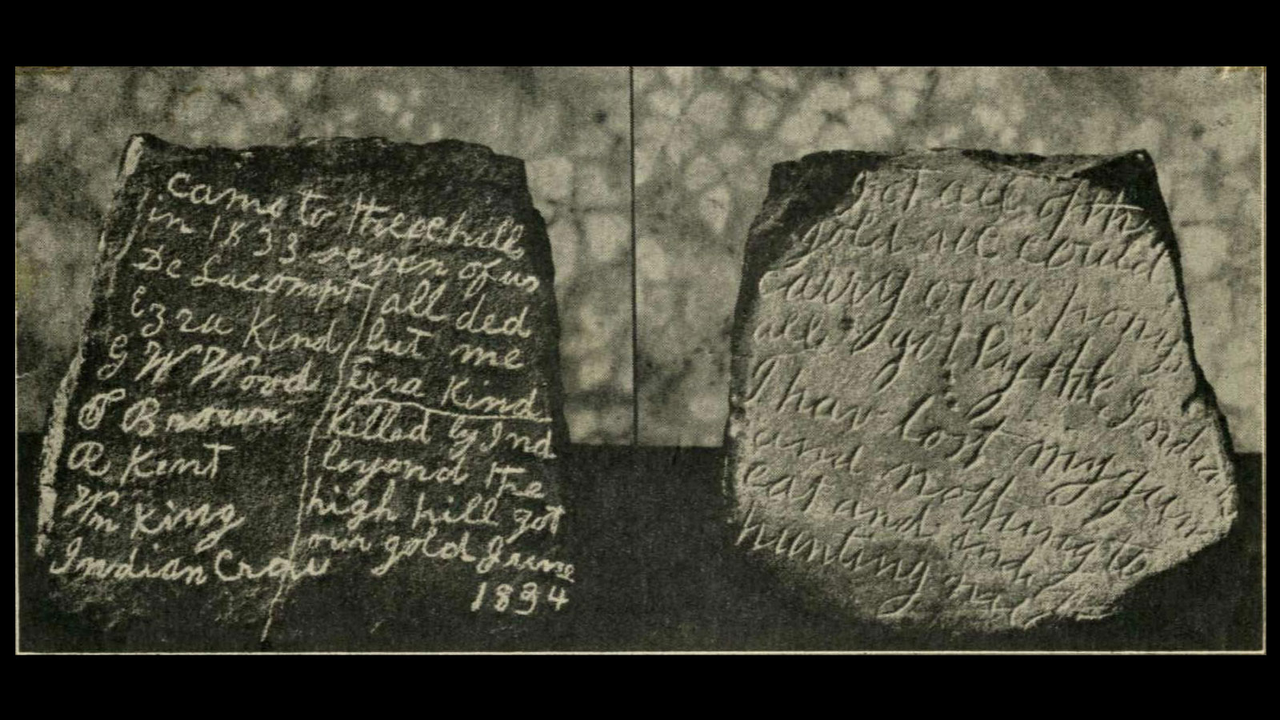 came to theese hills
in 1833 seven of us
De Lacompt
Ezra Kind
G W Wood
T Brown
R Kent
Wm King
Indian Crow
all ded
but me
Ezra Kind
Killed by Ind
beyond the
high hill got
our gold June
1834
Got all of the
gold we could
carry our ponys
all got by the Indians
I hav lost my gun
and nothing to
eat and indians
hunting me